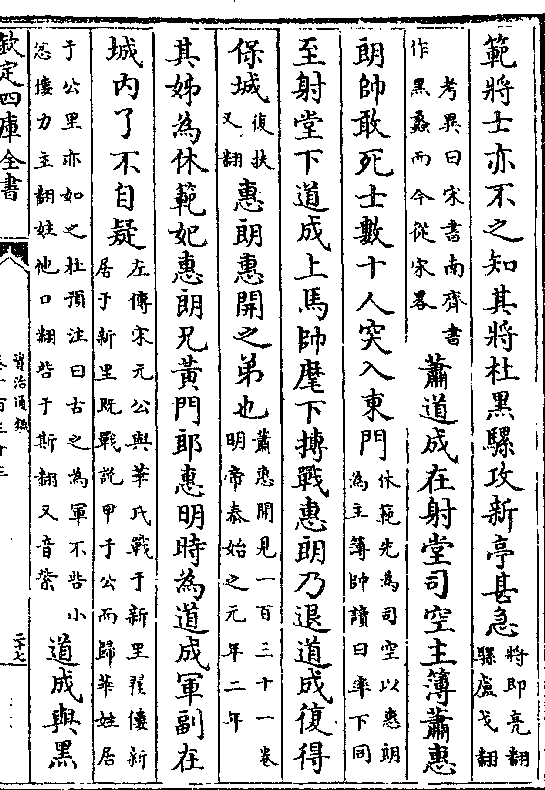 範將士亦不之知其將杜黑騾攻新亭甚急將即亮翻騾盧戈翻
考異曰宋書南齊書作黑蠡而今從宋畧蕭道成在射堂司空主簿蕭惠
朗帥敢死士數十人突入東門休範先為司空以惠朗為主簿帥讀曰率下同
至射堂下道成上馬帥麾下搏戰惠朗乃退道成復得
保城復扶又翻惠朗惠開之弟也蕭惠開見一百三十一卷明帝泰始之元年二年
其姊為休範妃惠朗兄黃門郎惠明時為道成軍副在
城內了不自疑左傳宋元公與華氏戰于新里翟僂新居于新里既戰說甲于公而歸華姓居
于公里亦如之杜預注曰古之為軍不呰小忿僂力主翻姓他口翻呰于斯翻又音紫道成與黑
欽定四庫全書
資治通鑑
卷一百三十三
二十七